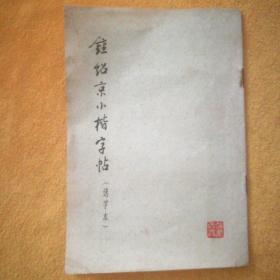 鍾绍京小楷字帖（选字本）